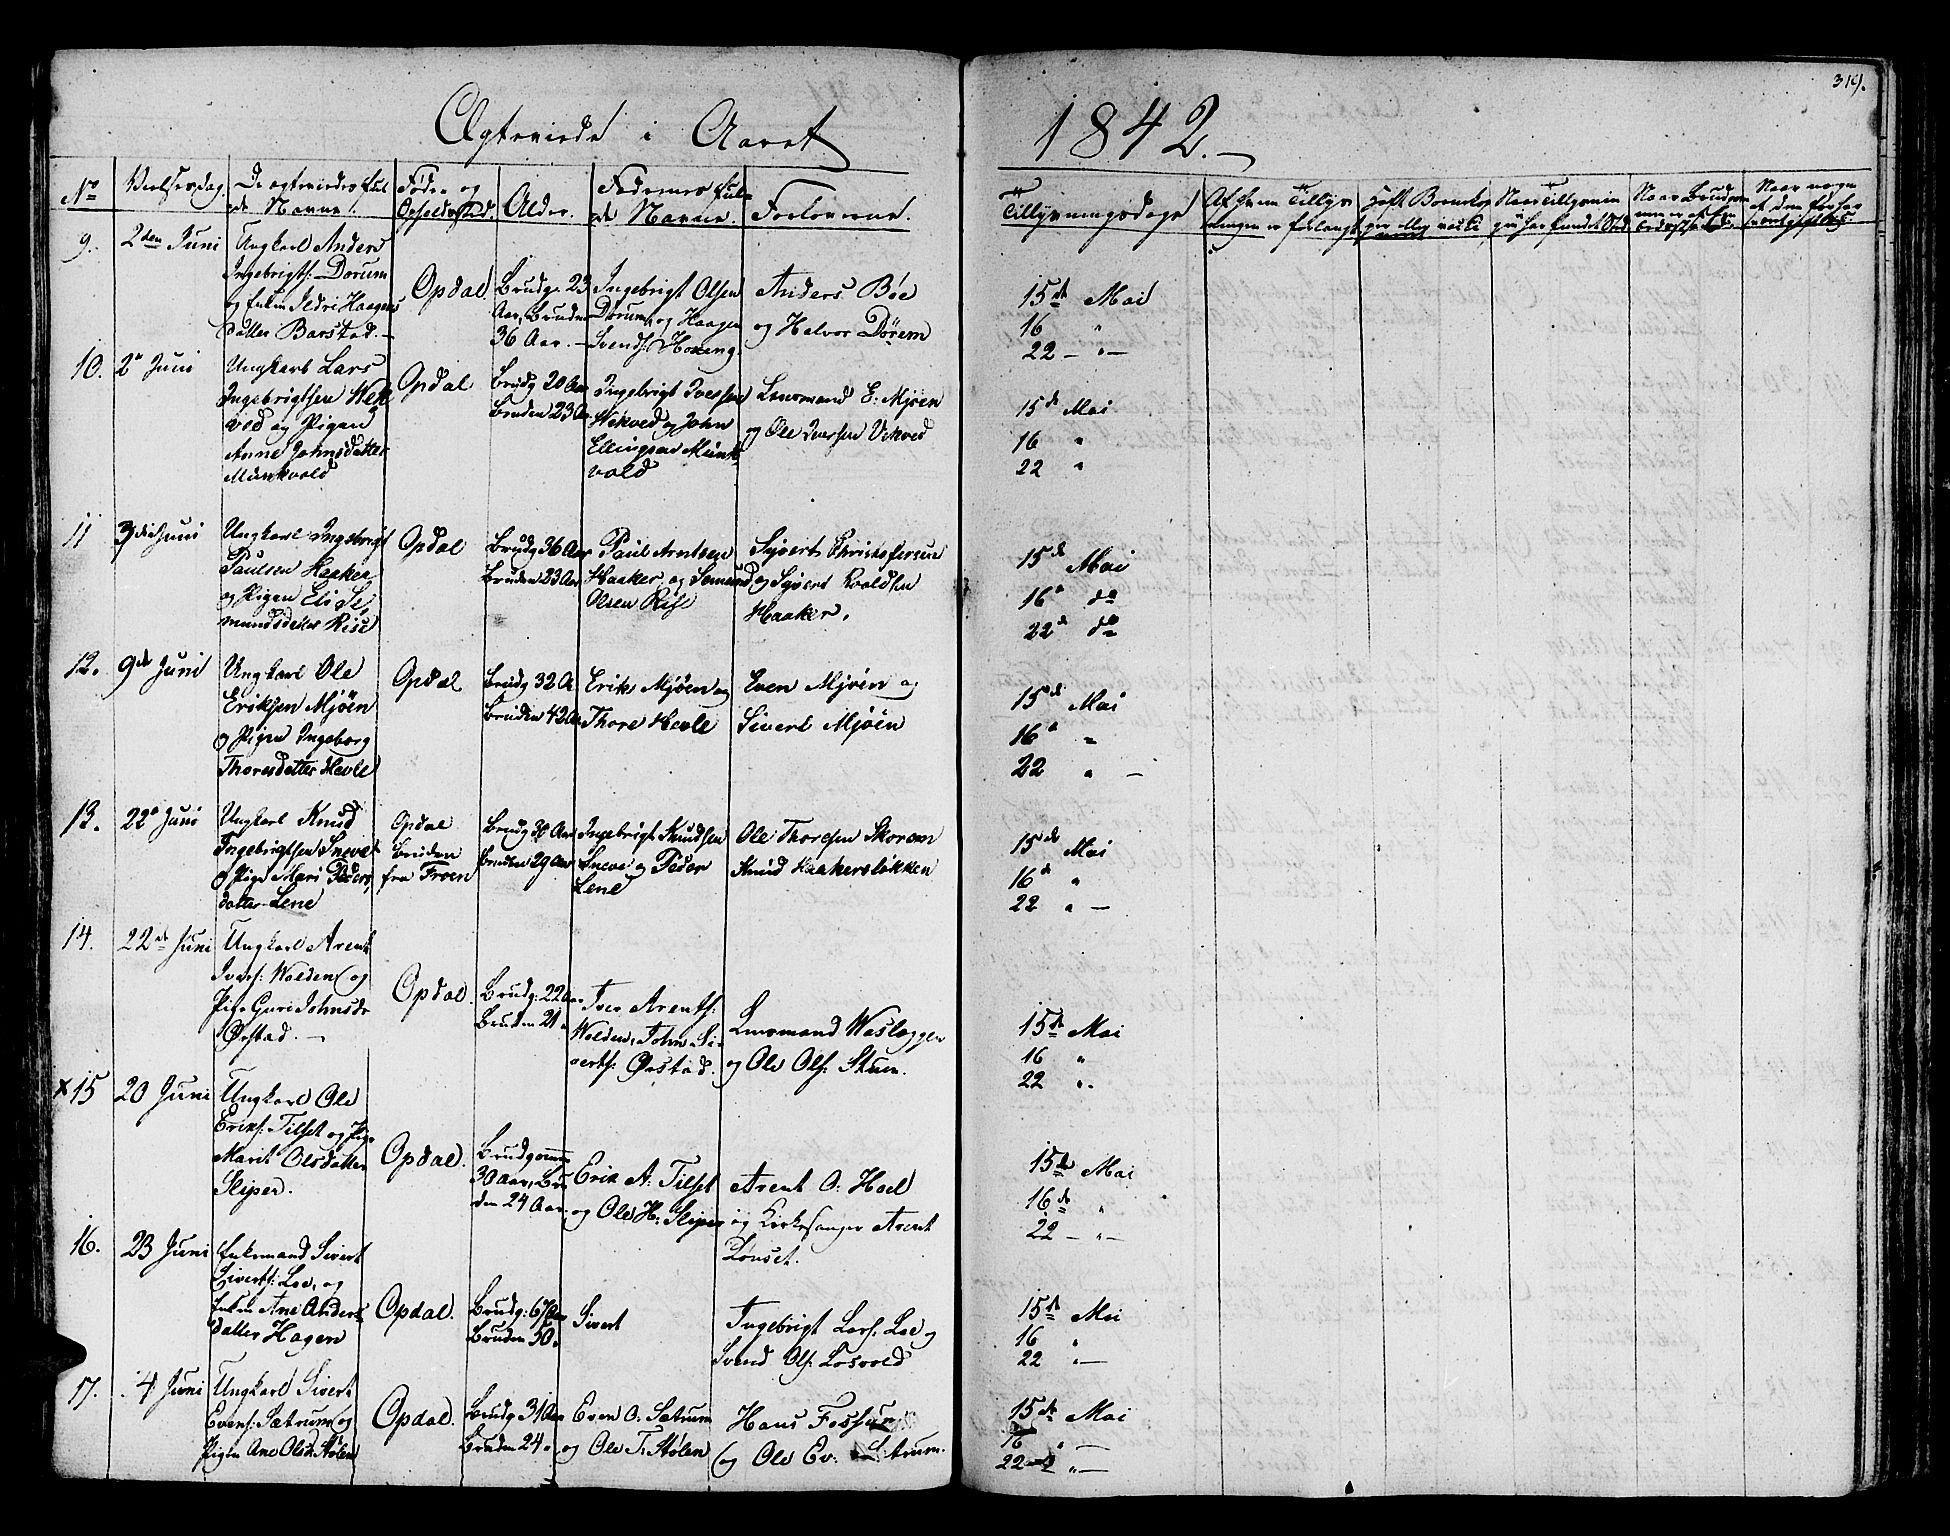 319.
Ægteviede i Aaret 1842.
No
Vielsesdag.
De ægteviedes fulde Navne.
Føde- og Opholdssted.
Alder.
Fædrenes fulde Navne.
Forloverne.
Tillysningsdage
Af hvem Tillysningen er forlangt
9.
2den Juni
Ungkarl Anders
Ingebrigts: Dørum
og Enken Sidri Haagens
datter Barstad.
Opdal.
Brudg. 23
Aar, Bruden
36 Aar.
Ingebrigt Olsen
Dørum og Haagen
Svends: Hoveng.
Anders Bøe
og Halvor Dørem
15de Mai
16 "
22 - " -
10.
2den Juni
Ungkarl Lars
Ingebrigtsen Wek
ved og Pigen
Anne Johnsdatter
Munkvold
Opdal
Brudg 20 Aar
Bruden 23 Aar
Ingebrigt Iversen
Wekved og John
Ellingsen Munk
vold
Lensmand E: Mjøen
og Ole Iversen Vekved
15de Mai
16 "
22 "
11
3die Juni
Ungkarl Ingebrigt
Paulsen Haaker
og Pigen Eli Se
mundsdatter Rise
Opdal
Brudg 36 Aar
Bruden 23 Aar
Paul Arntsen
Haaker, og Semund
Olsen Rise
Syvert Christofersen
og Syvert Haaker.
15de Mai
16de do
22de do
12.
9de Juni
Ungkarl Ole
Eriksen Mjöen
og Pigen Ingeborg
Thoresdatter Hevle
Opdal
Brudg 32 A
Bruden 42 Aar
Erik Mjöen og
Thore Hevle
Even Mjöen og
Sivert Mjöen
15de Mai
16de "
22 " -
13.
22de Juni
Ungkarl Knud
Ingebrigtsen Sneve
og Pige Mari Peders
datter Lene
Opdal
bruden
fra Froen
Brudg 30 Aar
Bruden 29 Aar
Ingebrigt Knudsen
Sneve og Peder
Lene
Ole Thoresen Skorem
Knud Haakersløkken
15de Mai
16de "
22 " -
14.
22de Juni
Ungkarl Arent
Ivers: Wolden og
Pige Guri Johnsdr
Ørstad.
Opdal.
Brudg: 22 Aar
Bruden 21 "
Iver Arents:
Wolden, John Si-
verts: Ørstad.
Lensmand Wasløggen
og Ole Ols: Skuen.
15de Mai
16 "
22 "
x 15
20 Juni
Ungkarl Ole
Eriks: Tilset og Pige
Marit Olsdatter
Sliper.
Opdal.
Brudgommen
30 Aar, Bru
den 24 Aar.
Erik A: Tilset
og Ole H: Sliper
Arent O: Hoel
og Kirkesanger Arent
Lønset.
15de Mai
16de "
22 - " -
16.
23 Juni
Enkemand Sivert
Siverts: Loe, og
Enken Ane Anders
datter Hagen
Opdal.
Brudg: 67 Aar
Bruden 50 "
Sivert
Ingebrigt Lars: Loe og
Svend Ols: Losvold
15de Mai
16 "
22 " -
17.
4 Juni
Ungkarl Sivert
Evens: Sætrum og
Pigen Ane Olsdr Stølen
Opdal.
Brudg 31 Aar
Bruden 24 "
Even O. Sætrum
og Ole T: Stølen
Hans Fossum
og Ole Ev: Sætrum.
15de Mai
16 " -
22 " -